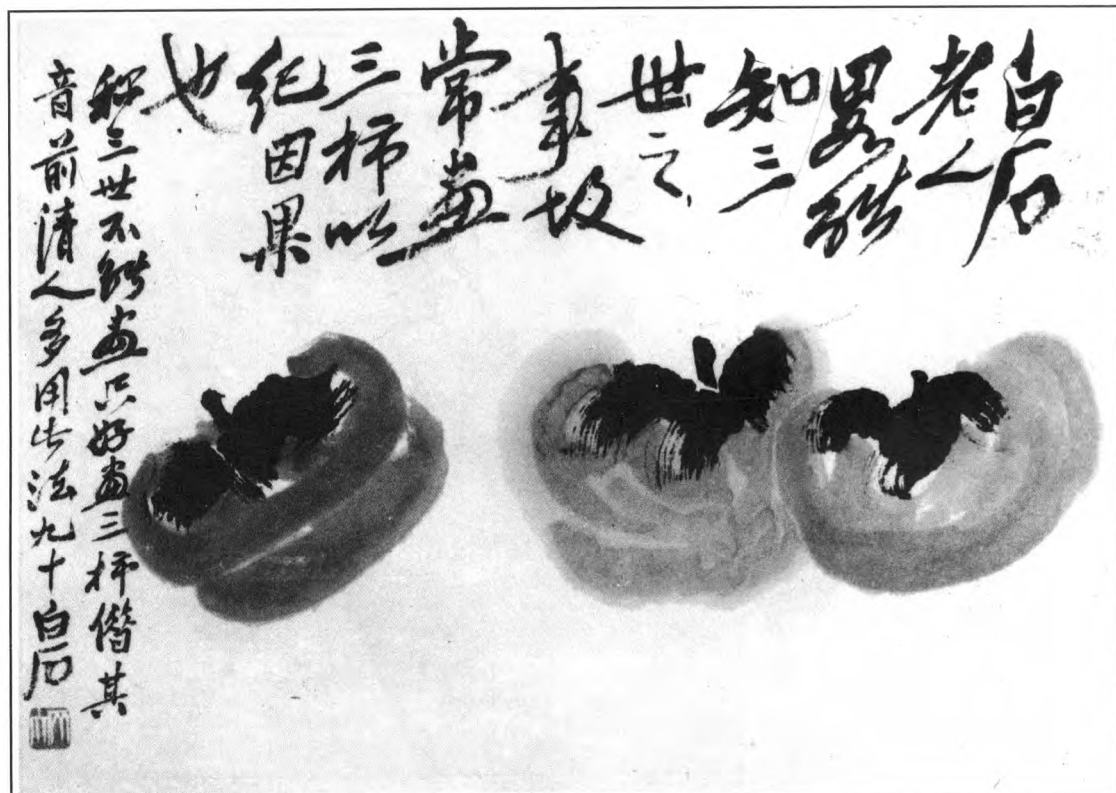 白石
老人
畧能
知三
世之
事故
常畫
三柿以
紀因果
也
三世不能畫只好畫三柿借其
音前清人多用此法九十白石